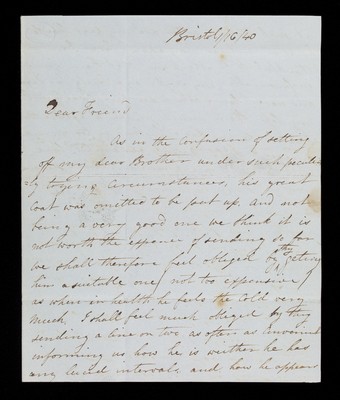 Bristol 1/6/40
Dear Friend
As in the confusion of setting
off my dear Brother under such peculiar
ly trying circumstances, his great
Coat was omitted to be put up. And not
being a very good one we think it is
not worth the expence of sending so far
we shall therefore feel obliged by thy getting
him a suitable one / not too expensive /
as when in health he feels the Cold very
much, I shall feel much obliged by thy
sending a line or two as often as convenient
informing us how he is wether he has
any lucid intervals and how he appears